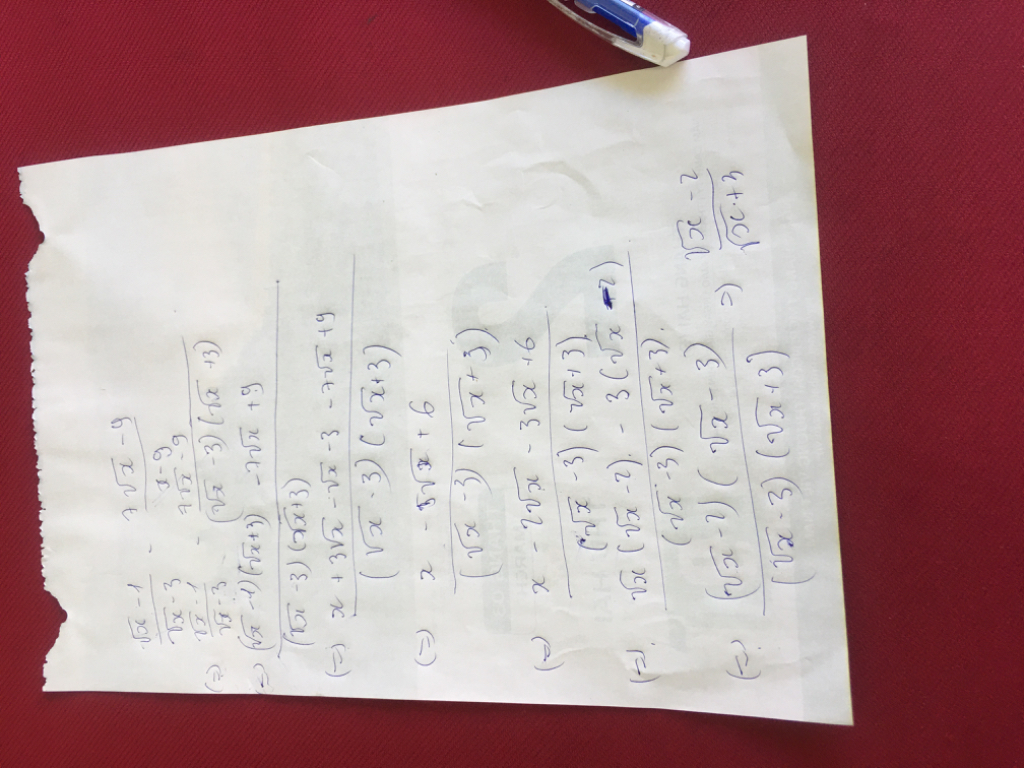 (√x - 1)/(√x - 3) - (7√x - 9)/(x - 9)
(=) (√x - 1)/(√x - 3) - (7√x - 9)/((√x - 3)(√x + 3))
(=) ((√x - 1)(√x + 3) - 7√x + 9)/((√x - 3)(√x + 3))
(=) (x + 3√x - √x - 3 - 7√x + 9)/((√x - 3)(√x + 3))
(=) (x - 5√x + 6)/((√x - 3)(√x + 3))
(=) (x - 2√x - 3√x + 6)/((√x - 3)(√x + 3))
(=) (√x(√x - 2) - 3(√x - 2))/((√x - 3)(√x + 3))
(=) ((√x - 2)(√x - 3))/((√x - 3)(√x + 3)) => (√x - 2)/(√x + 3)